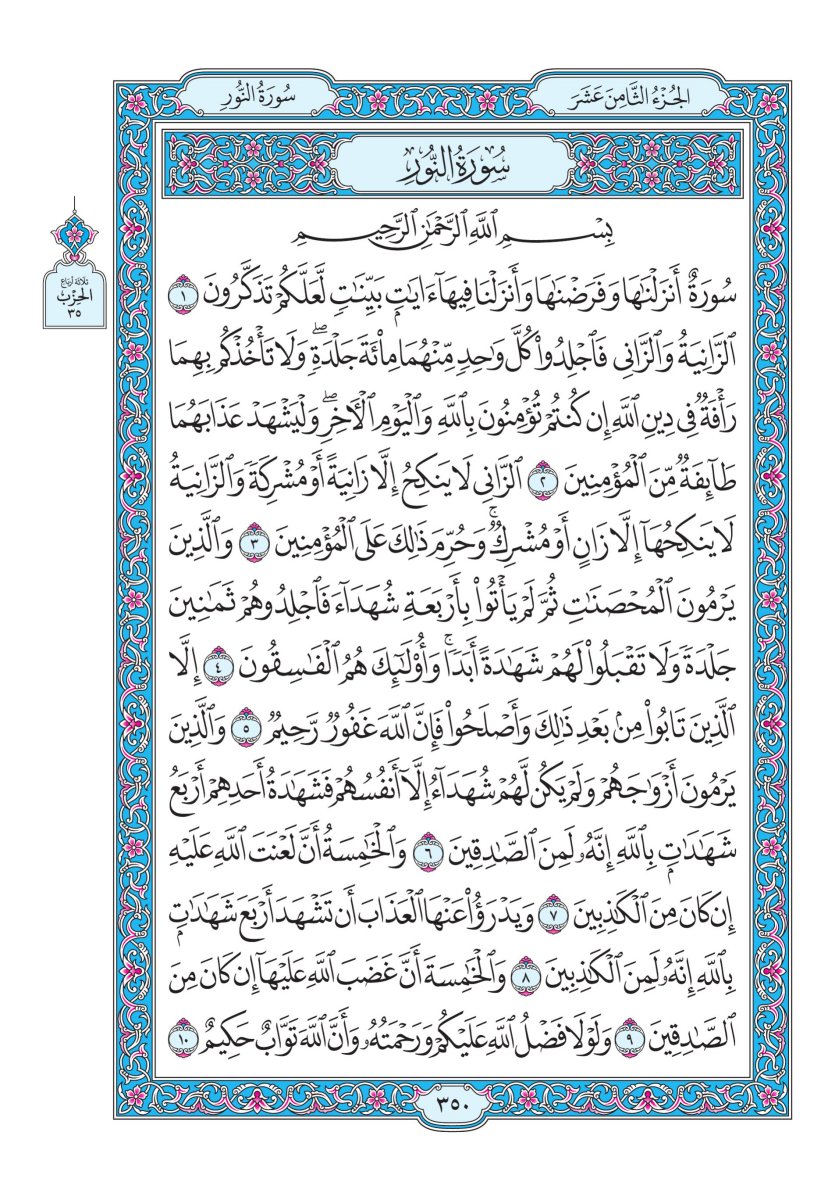 الجُزْءُ الثَّامِنَ عَشَرَ
سُورَةُ النُّورِ
سُورَةُ النُّورِ
بِسْمِ ٱللَّهِ ٱلرَّحْمَٰنِ ٱلرَّحِيمِ
سُورَةٌ أَنزَلْنَٰهَا وَفَرَضْنَٰهَا وَأَنزَلْنَا فِيهَآ ءَايَٰتٍۭ بَيِّنَٰتٍ لَّعَلَّكُمْ تَذَكَّرُونَ ١
ثلاثة أرباع
الحِزْب
٣٥
ٱلزَّانِيَةُ وَٱلزَّانِى فَٱجْلِدُوا۟ كُلَّ وَٰحِدٍ مِّنْهُمَا مِا۟ئَةَ جَلْدَةٍۖ وَلَا تَأْخُذْكُم بِهِمَا
رَأْفَةٌ فِى دِينِ ٱللَّهِ إِن كُنتُمْ تُؤْمِنُونَ بِٱللَّهِ وَٱلْيَوْمِ ٱلْءَاخِرِۖ وَلْيَشْهَدْ عَذَابَهُمَا
طَآئِفَةٌ مِّنَ ٱلْمُؤْمِنِينَ ٢ ٱلزَّانِى لَا يَنكِحُ إِلَّا زَانِيَةً أَوْ مُشْرِكَةً وَٱلزَّانِيَةُ
لَا يَنكِحُهَآ إِلَّا زَانٍ أَوْ مُشْرِكٌۚ وَحُرِّمَ ذَٰلِكَ عَلَى ٱلْمُؤْمِنِينَ ٣ وَٱلَّذِينَ
يَرْمُونَ ٱلْمُحْصَنَٰتِ ثُمَّ لَمْ يَأْتُوا۟ بِأَرْبَعَةِ شُهَدَآءَ فَٱجْلِدُوهُمْ ثَمَٰنِينَ
جَلْدَةً وَلَا تَقْبَلُوا۟ لَهُمْ شَهَٰدَةً أَبَدًاۚ وَأُو۟لَٰٓئِكَ هُمُ ٱلْفَٰسِقُونَ ٤ إِلَّا
ٱلَّذِينَ تَابُوا۟ مِنۢ بَعْدِ ذَٰلِكَ وَأَصْلَحُوا۟ فَإِنَّ ٱللَّهَ غَفُورٌ رَّحِيمٌ ٥ وَٱلَّذِينَ
يَرْمُونَ أَزْوَٰجَهُمْ وَلَمْ يَكُن لَّهُمْ شُهَدَآءُ إِلَّآ أَنفُسُهُمْ فَشَهَٰدَةُ أَحَدِهِمْ أَرْبَعُ
شَهَٰدَٰتٍۭ بِٱللَّهِ إِنَّهُۥ لَمِنَ ٱلصَّٰدِقِينَ ٦ وَٱلْخَٰمِسَةُ أَنَّ لَعْنَتَ ٱللَّهِ عَلَيْهِ
إِن كَانَ مِنَ ٱلْكَٰذِبِينَ ٧ وَيَدْرَؤُا۟ عَنْهَا ٱلْعَذَابَ أَن تَشْهَدَ أَرْبَعَ شَهَٰدَٰتٍۭ
بِٱللَّهِ إِنَّهُۥ لَمِنَ ٱلْكَٰذِبِينَ ٨ وَٱلْخَٰمِسَةَ أَنَّ غَضَبَ ٱللَّهِ عَلَيْهَآ إِن كَانَ مِنَ
ٱلصَّٰدِقِينَ ٩ وَلَوْلَا فَضْلُ ٱللَّهِ عَلَيْكُمْ وَرَحْمَتُهُۥ وَأَنَّ ٱللَّهَ تَوَّابٌ حَكِيمٌ ١٠
٣٥٠